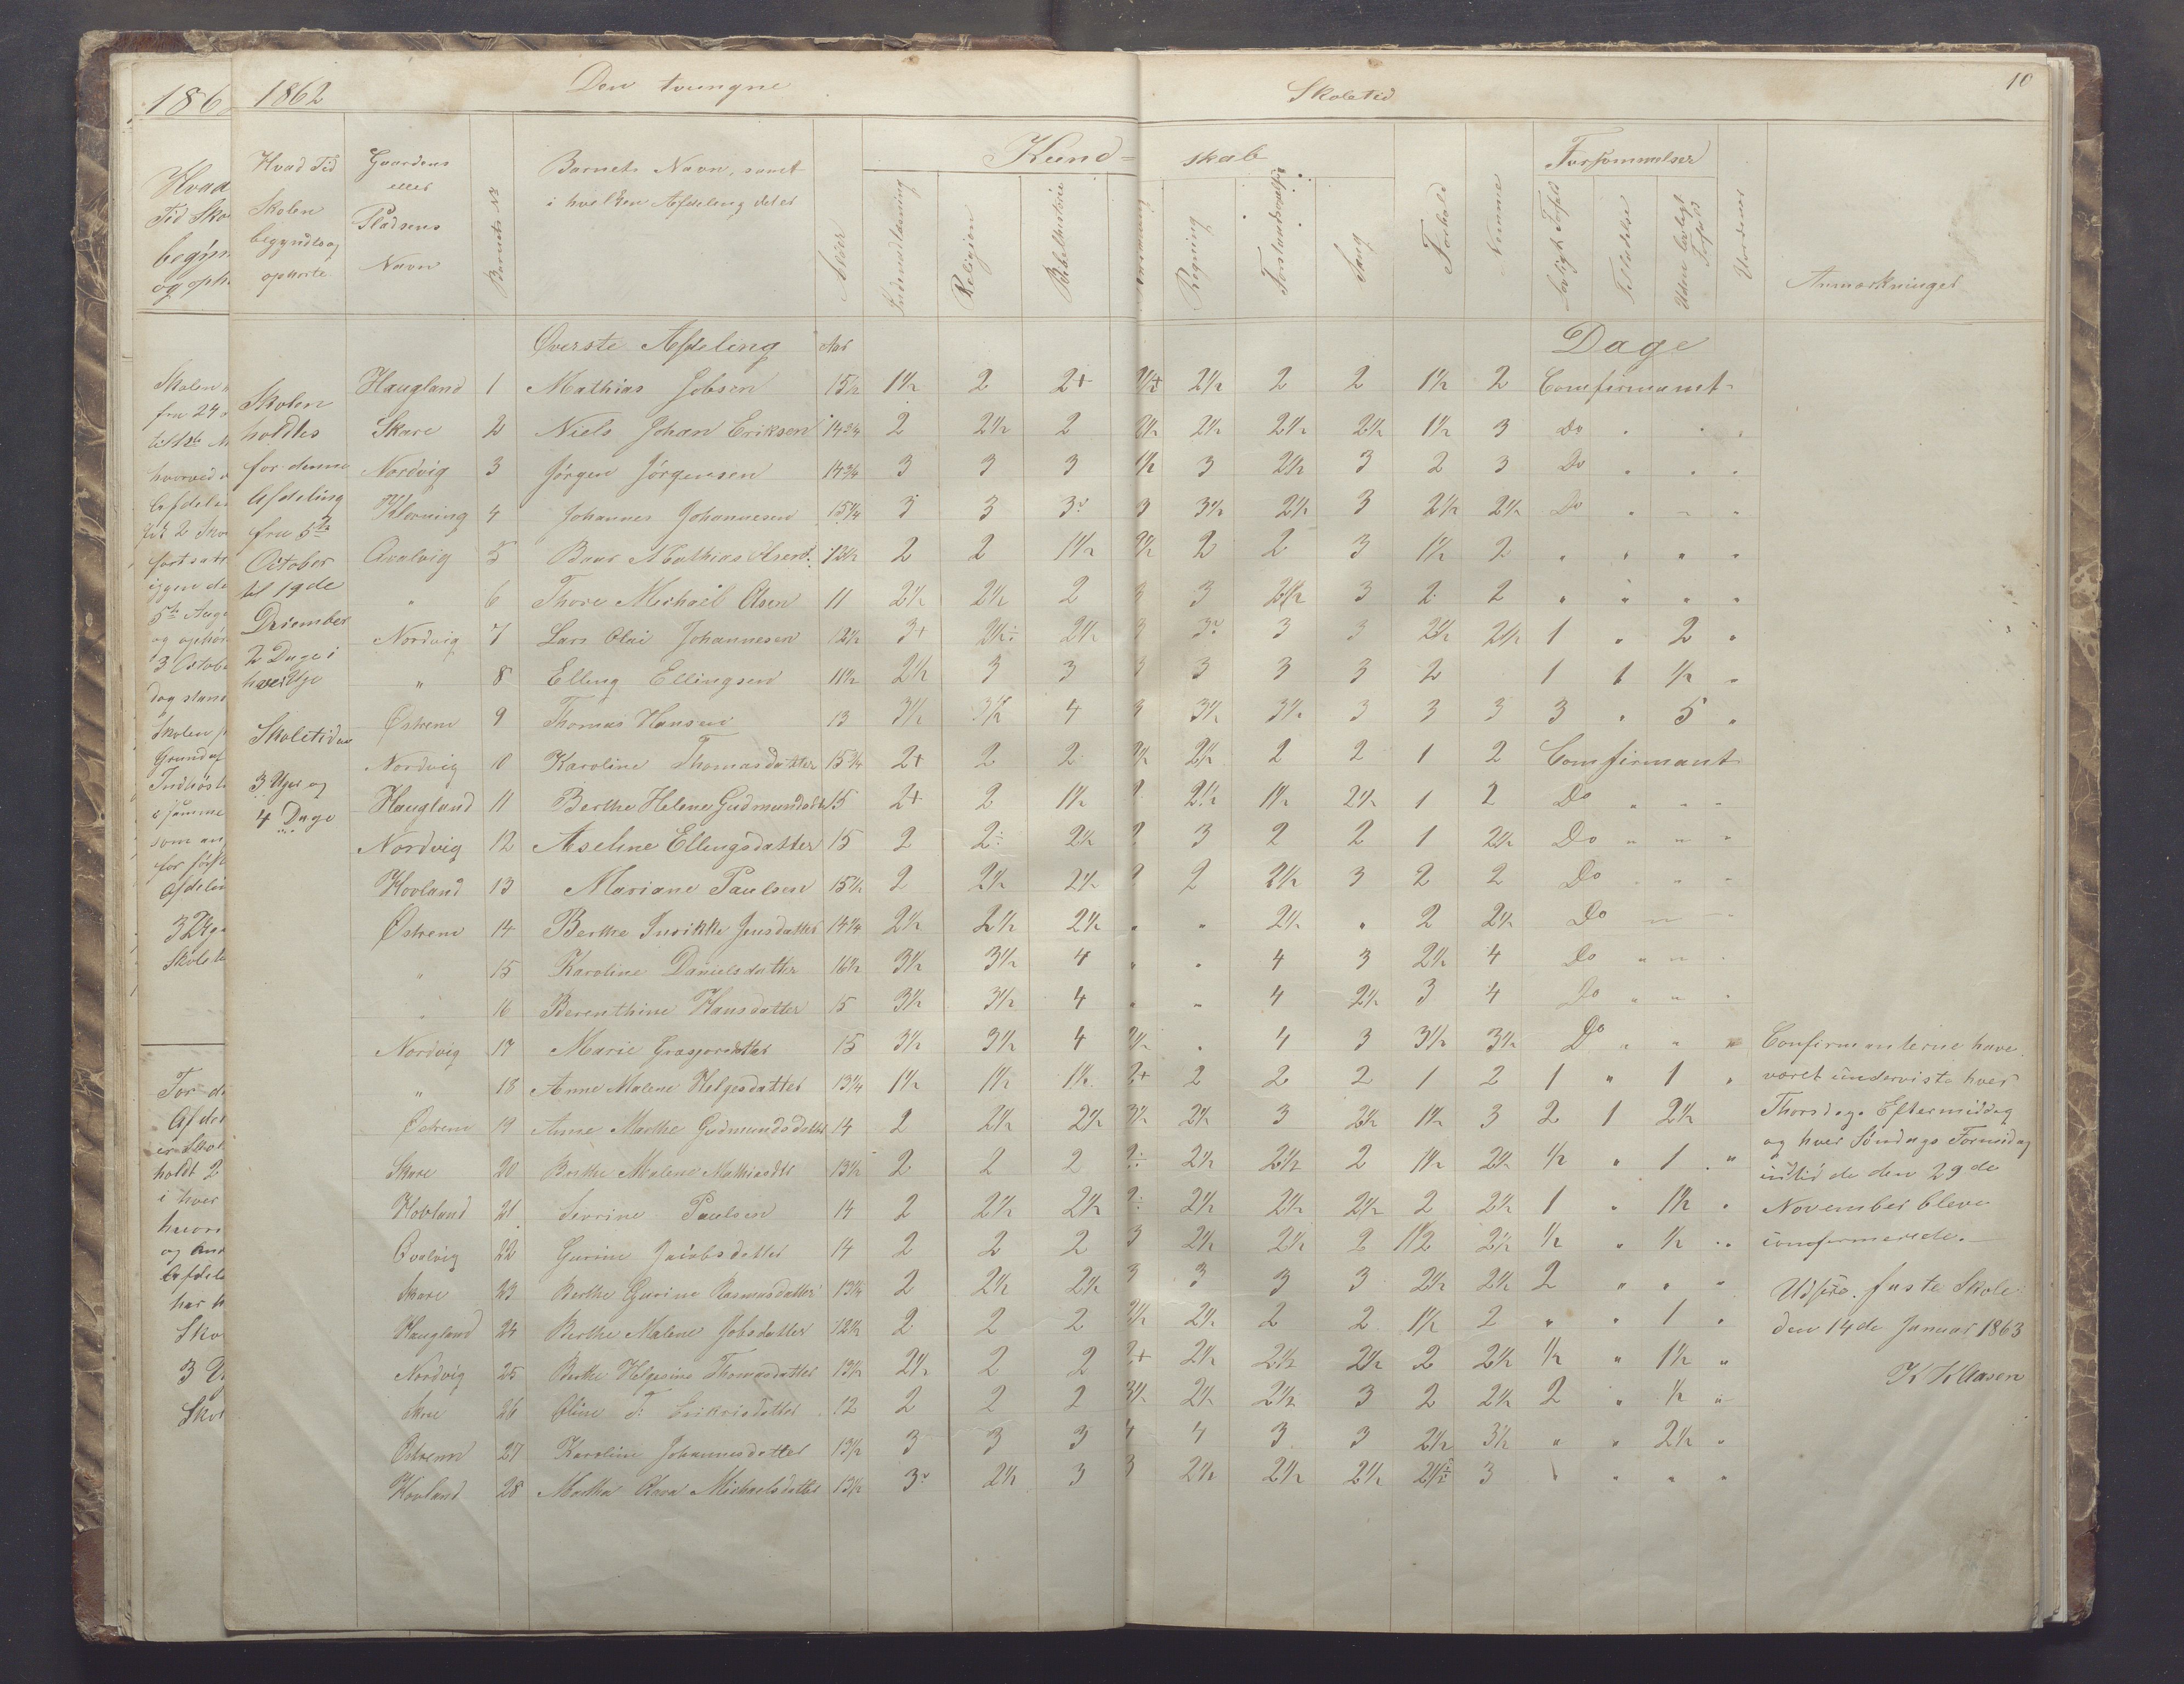 1862
Den tvungne Skoletid
10
Hvad Tid Skolen begyndte og ophørte
Gaardens eller Pladsens Navn
Barnets No
Barnets Navn, samt i hvilken Afdeling det er
Alder
Kundskab
Indenadlæsning
Religion
Bibelhistorie
Regning
Forstandsøvelse
Sang
Forhold
Nemme
Forsømmelser
Lovligt Forfald
Tilladelse
Uden lovligt Forfald
Anmærkninger
Øverste Afdeling Aar Dage
Haugland 1 Mathias Jobsen 15½ 1½ 2 2+ 2½ 2 2 1½ 2 Comfirmant
Skare 2 Niels Johan Eriksen 14¾ 2 2½ 2 2½ 2½ 2½ 2½ 1½ 3 Do
Nordvig 3 Jørgen Jørgensen 14¾ 3 3 3 3 2½ 3 2 3 Do
4 Johannes Johannesen 15¼ 3 3 3 3 3½ 2½ 3 2½ 2½ Do
Qvalvig 5 Mathias 2 2 1½ 2½ 2 2 3 1½ 2 " " " "
" 6 Thore Michael Olsen 11 2½ 2½ 2 3 3 2½ 3 2 2 " " " "
Nordvig 7 Lars Olai Johannesen 12½ 3+ 2½ 2½ 3 3 3 3 2½ 2½ 1 " 2 "
" 8 Elling Ellingsen 11½ 2½ 3 3 3 3 3 3 2 1 1 ½ "
Østrem 9 Thomas Hansen 13 3½ 3½ 4 3 3½ 3½ 3 3 3 3 " 5 "
Nordvig 10 Karoline Thomasdatter 15¾ 2+ 2 2 2½ 2½ 2 2 1 2 Comfirmant
Haugland 11 Berthe Helene Gudmundsdtr 15 2+ 2 1½ 2½ 1½ 2½ 1 2 Do " " "
Nordvig 12 Aseline Ellingsdatter 15 2 2÷ 2½ 3 2 2 1 2½ Do " " "
Hovland 13 Mariane Paulsen 15½ 2 2½ 2½ 2 2½ 3 2 2 Do " " "
Østrem 14 Berthe Jensdatter 14¼ 2½ 2½ 2½ " " 2½ " 2 2½ Do " "
" 15 Karoline Danielsdatter 16½ 3½ 3½ 4 " " 4 3 2½ 4 Do " " "
" 16 Berenthine Hansdatter 15 3½ 3½ 4 " " 4 2½ 3 4 Do " " "
Nordvig 17 Marie 15 3½ 3½ 4 " 4 3 3½ 3½ Do " " "
" 18 Anne Malene Helgesdatter 13¼ 1½ 1½ 1½ 2+ 2 2 2 1 2 1 " 1 "
Østrem 19 Anne Marthe Gudmundsdatter 14 2 2½ 2½ 3½ 2½ 3 2½ 1½ 3 2 1 2½
Skare 20 Berthe Malene Mathiasdtr 13½ 2 2 2 2÷ 2½ 2½ 2 1½ 2½ ½ " 1 "
Hovland 21 Sevrine Paulsen 14 2 2½ 2½ 2÷ 2½ 2½ 2½ 2 2½ 1 " 1½ "
Qvalvig 22 Gurine Jacobsdatter 14 2 2 2 3 2½ 2½ 2 1½ 2½ ½ " ½ "
Skare 23 Berthe Gurine Rasmusdatter 13¼ 2 2½ 2½ 3 3 3 3 2½ 2½ 2 " " "
Haugland 24 Berthe Malene Jobsdatter 12½ 2 2 2 2½ 2 2 1½ 2 " " 1 "
Nordvig 25 Berthe Helgesine Thomasdatter 13½ 2½ 2 2 2+ 2½ 2½ 2½ 2 2½ ½ " 1½ "
Skare 26 Oline T. Eriksdatter 12 2 2 2 3½ 2½ 2½ 3 2 2½ 2 " ½ "
Østrem 27 Karoline Johannesdatter 13½ 3 3 3 4 4 3 3 2½ 3½ " " 2½ "
Hovland 28 Martha Michaelsdatter 13½ 3 2½ 3 3 2½ 2½ 2½ 2½ 3 " " " "
Skolen
holdtes
for denne
Afdeling
fra 5te
October
til 19de
Desember
2 Dage i
hver Uge
Skoletiden
3 Uger og
4 Dage
Confirmanterne have
været underviste hver
Thorsdags Eftermiddag
og hver Søndags Formidag
indtil de den 29de
November bleve
confirmerede.
Udsire faste Skole
den 14de Januar 1863
K K Aasen
186
Hvad
Tid Sko
begyn
og oph
Skolen
fra 24
3 Octobe
Skolen
som an
Skole
For d
Afde
holdt 2
i hver
har h
Sko